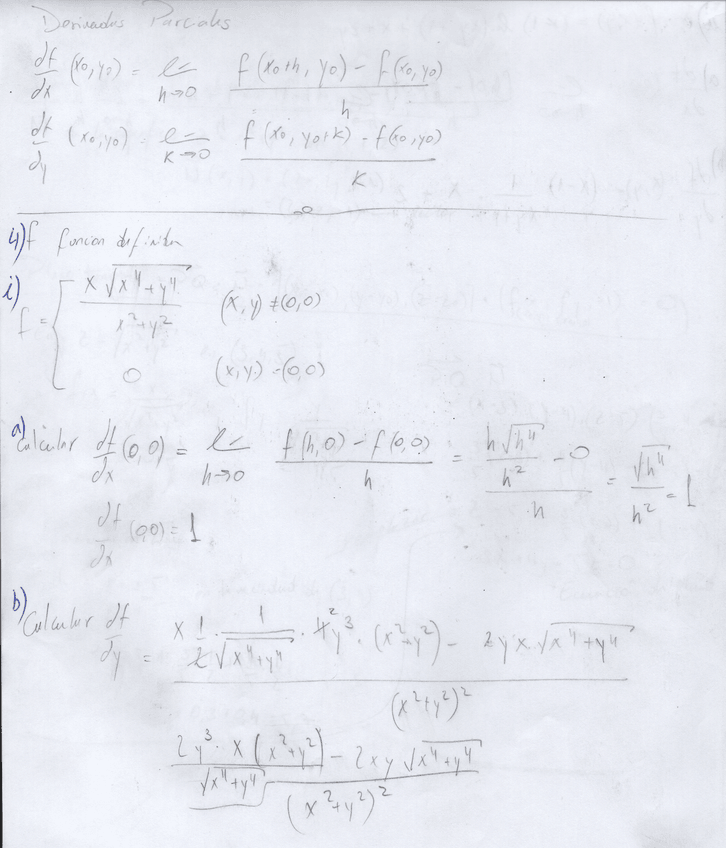 Derivadas Parciales
df/dx (x0,y0) = lim h→0 (f(x0+h, y0) - f(x0,y0)) / h
df/dy (x0,y0) = lim K→0 (f(x0, y0+k) - f(x0,y0)) / K
4) f funcion definida
i) f = { x√(x⁴+y⁴) / (x²+y²) (x,y) ≠ (0,0)
0 (x,y) = (0,0)
a) Calcular df/dx (0,0) = lim h→0 (f(h,0) - f(0,0)) / h = (h√h⁴ / h² - 0) / h = √h⁴ / h² = 1
df/dx (0,0) = 1
b) Calcular df/dy = (x 1/2 · 1/√(x⁴+y⁴) · 4² y³ · (x²+y²) - 2yx · √(x⁴+y⁴)) / (x²+y²)²
(2y³ · x (x²+y²) / √(x⁴+y⁴) - 2xy √(x⁴+y⁴)) / (x²+y²)²